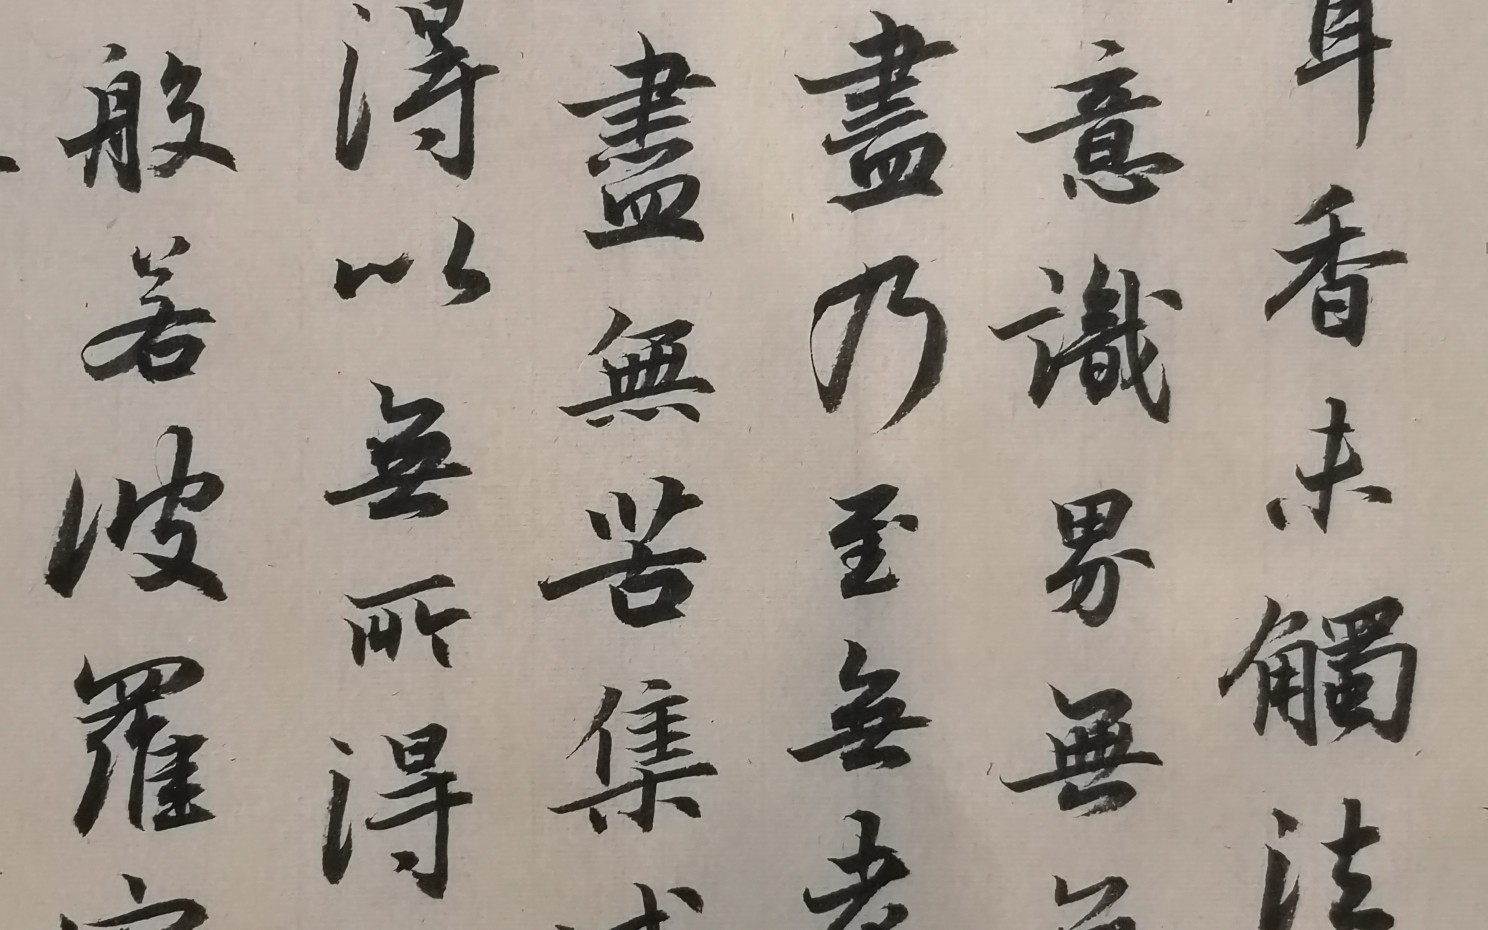 香未觸法
意識界無
盡乃至無老
盡無苦集
得以無所得
般若波羅